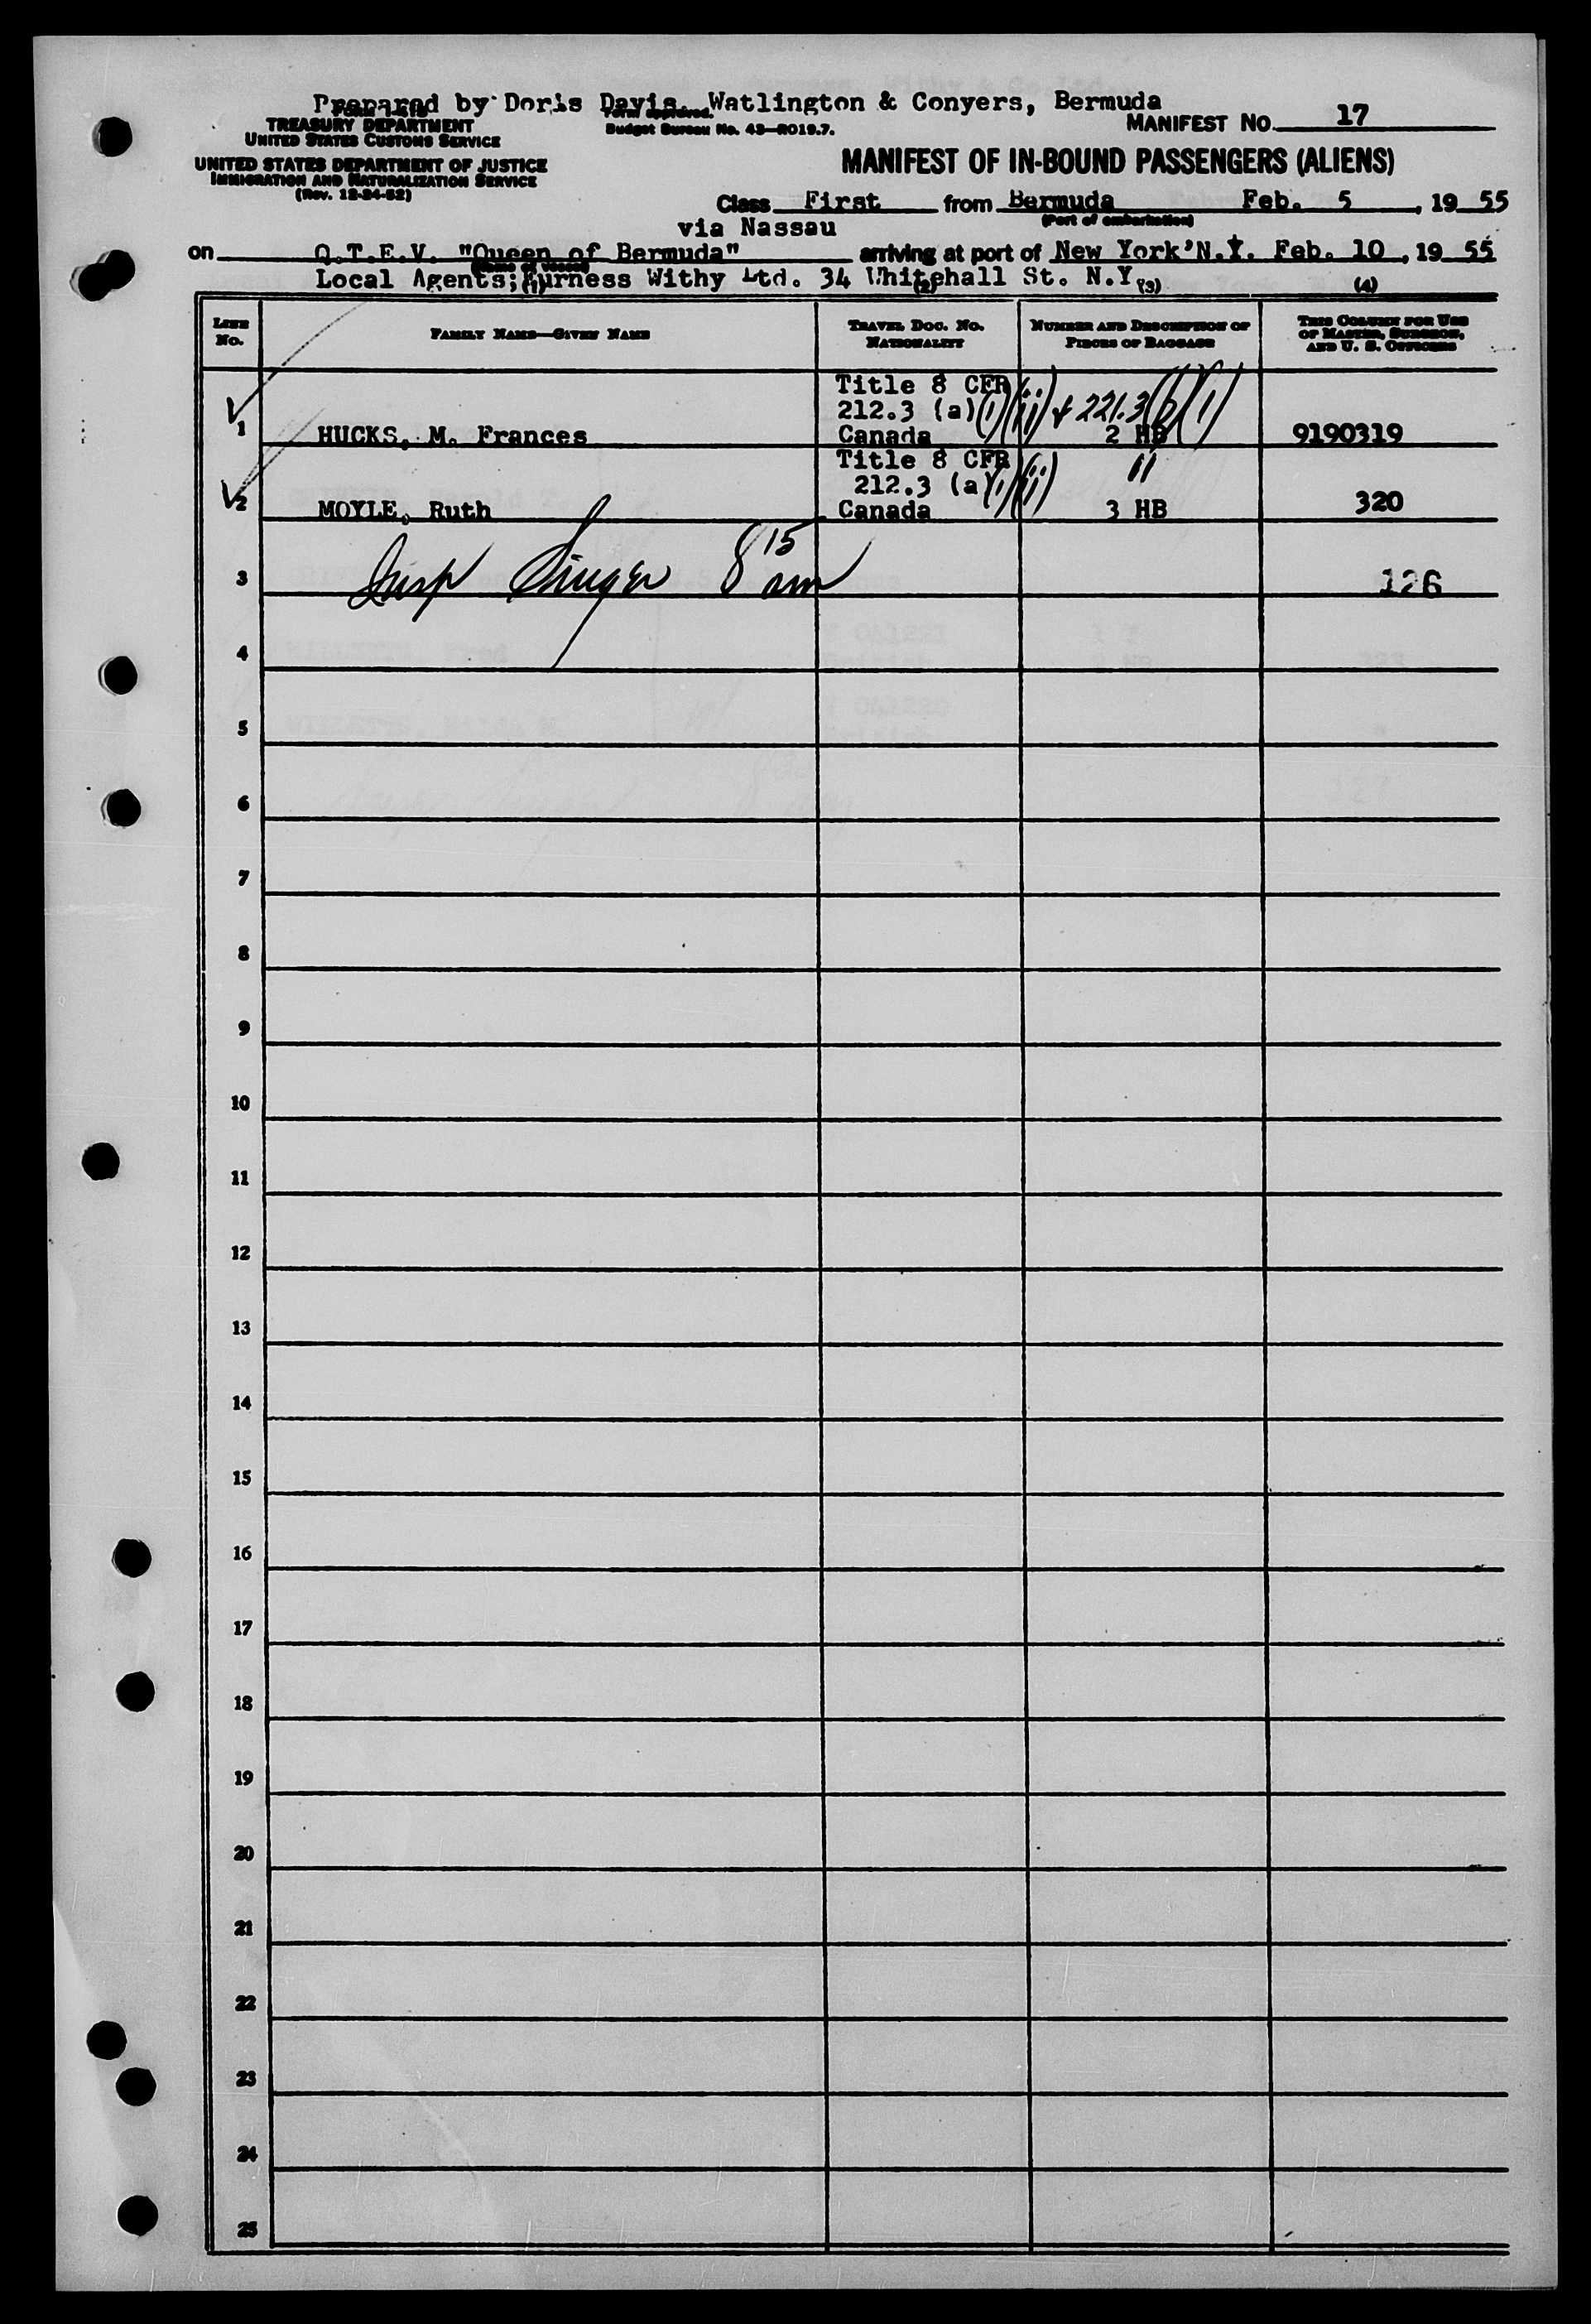 Prepared by Doris Davis, Watlington & Conyers, Bermuda
Form approved.
Budget Bureau No. 43—R019.7.
MANIFEST NO. 17
TREASURY DEPARTMENT
UNITED STATES CUSTOMS SERVICE
UNITED STATES DEPARTMENT OF JUSTICE
IMMIGRATION AND NATURALIZATION SERVICE
(Rev. 12-24-52)
MANIFEST OF IN-BOUND PASSENGERS (ALIENS)
Class First from Bermuda Feb. 5, 1955
(Port of embarkation)
via Nassau
on Q.T.E.V. "Queen of Bermuda" arriving at port of New York N.Y. Feb. 10, 1955
(Name of vessel)
Local Agents; Furness Withy Ltd. 34 Whitehall St. N.Y.
(1) (2) (3) (4)
LINE No.
FAMILY NAME—GIVEN NAME
TRAVEL DOC. NO. NATIONALITY
NUMBER AND DESCRIPTION OF PIECES OF BAGGAGE
THIS COLUMN FOR USE OF MASTER, SURGEON, AND U. S. OFFICERS
Title 8 CFR
212.3 (a) (i) (ii) & 221.3 (b) (i)
1 HUCKS, M. Frances Canada 2 HB 9190319
Title 8 CFR
212.3 (a) (i) (ii) "
2 MOYLE, Ruth Canada 3 HB 320
3 Insp Singer 8 15 am 126
4
5
6
7
8
9
10
11
12
13
14
15
16
17
18
19
20
21
22
23
24
25